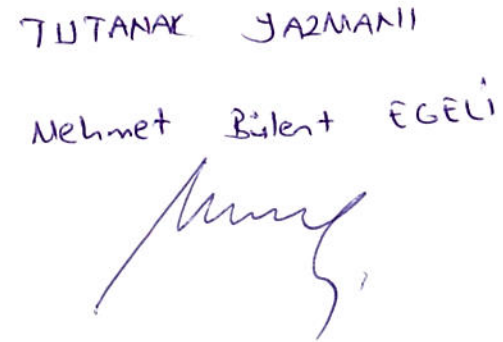 TUTANAK YAZMANI
Mehmet Bülent EGELİ